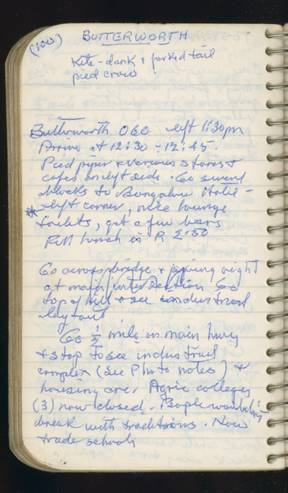 (100) BUTTERWORTH
Kite - dark & forked tail
pied crow
Butterworth 060 left 11:30pm
Arrive at 12:30 - 12:45.
Pied piper & various stores &
cafes on left side. Go several
blocks to Bungalow Hotel -
left corner, nice lounge
toilets, got a few bars
Full lunch is R 2.50
Go across bridge &
at main intersection Go
top of hill & see industrial
layout
Go ½ mile on main hwy
& stop to see industrial
complex (see Photo notes) &
housing area. Agric colleges
(3) now closed. People wouldn't
break with traditions. Now
trade schools